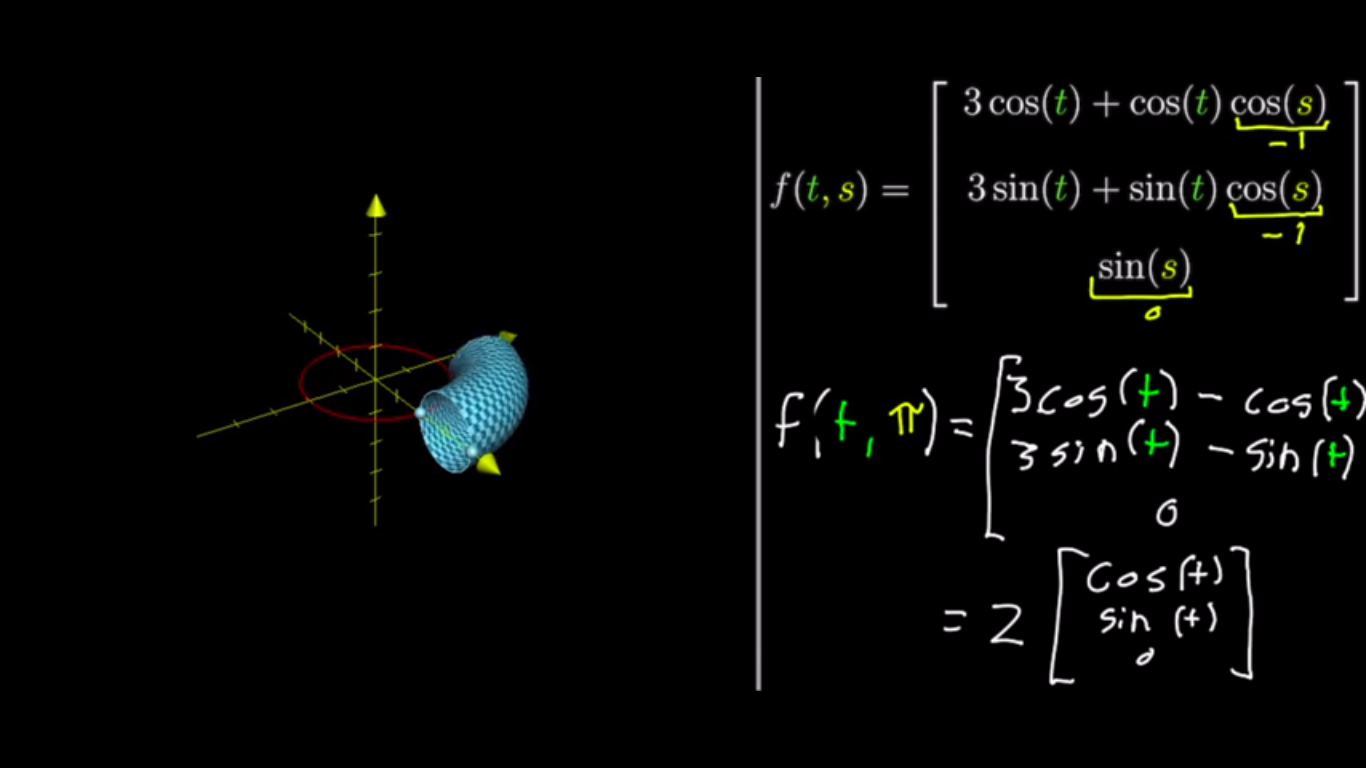 f(t, s) = [ 3 cos(t) + cos(t) cos(s)
-1
3 sin(t) + sin(t) cos(s)
-1
sin(s) ]
0
f(t, π) = [ 3cos(t) - cos(t)
3sin(t) - sin(t)
0
= 2 [ cos(t)
sin(t)
0 ]